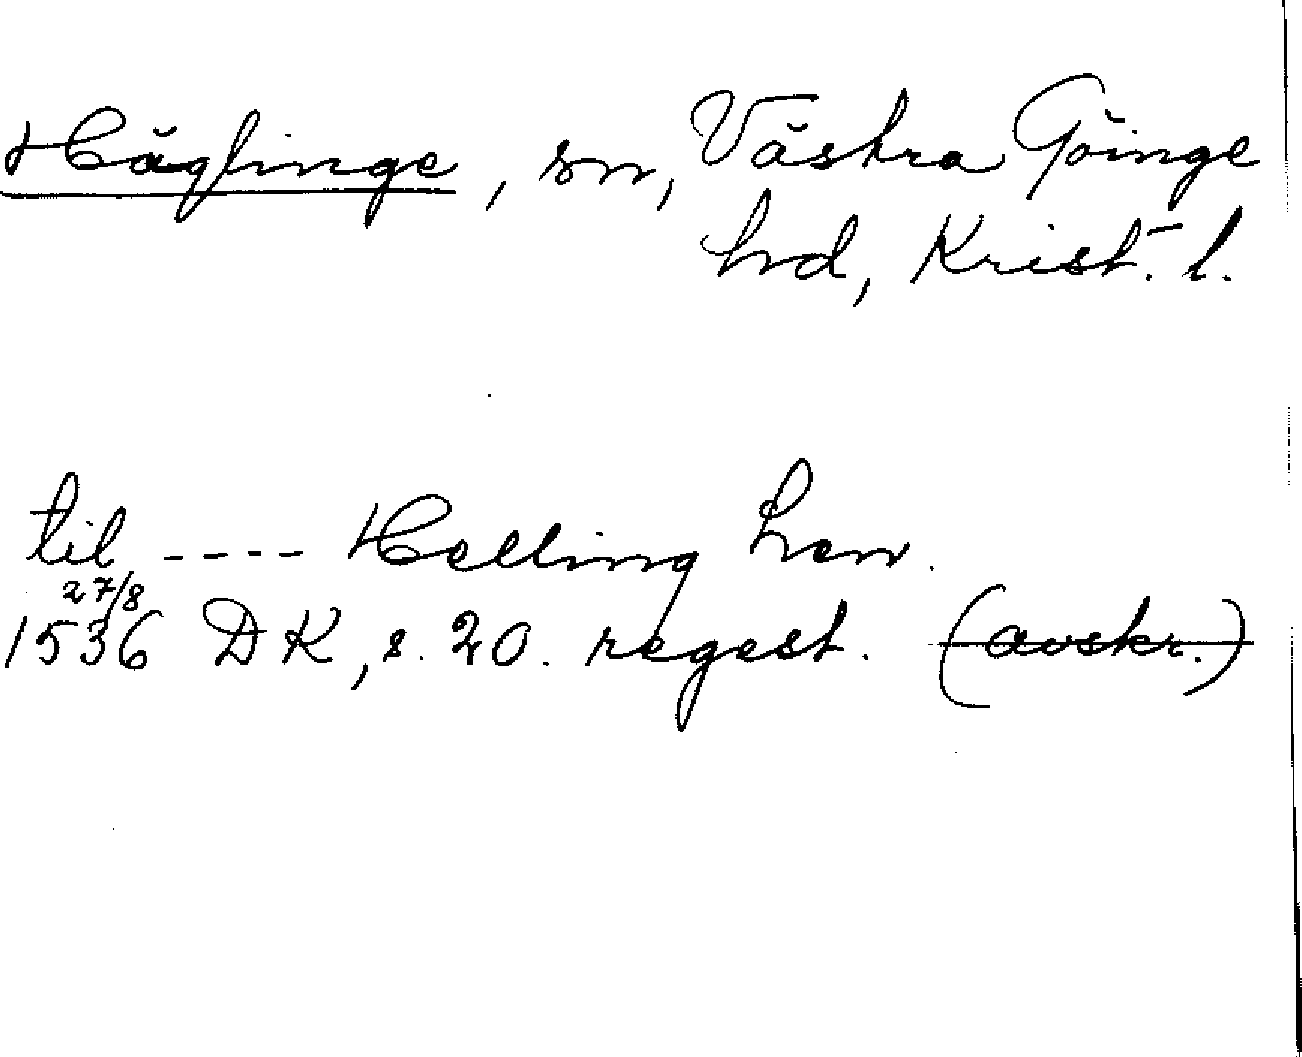 Häglinge, sn, Västra Göinge
hd, Krist. l.
til ---- Helling her.
27/8
1536 DK, s. 20. regest. (avskr.)